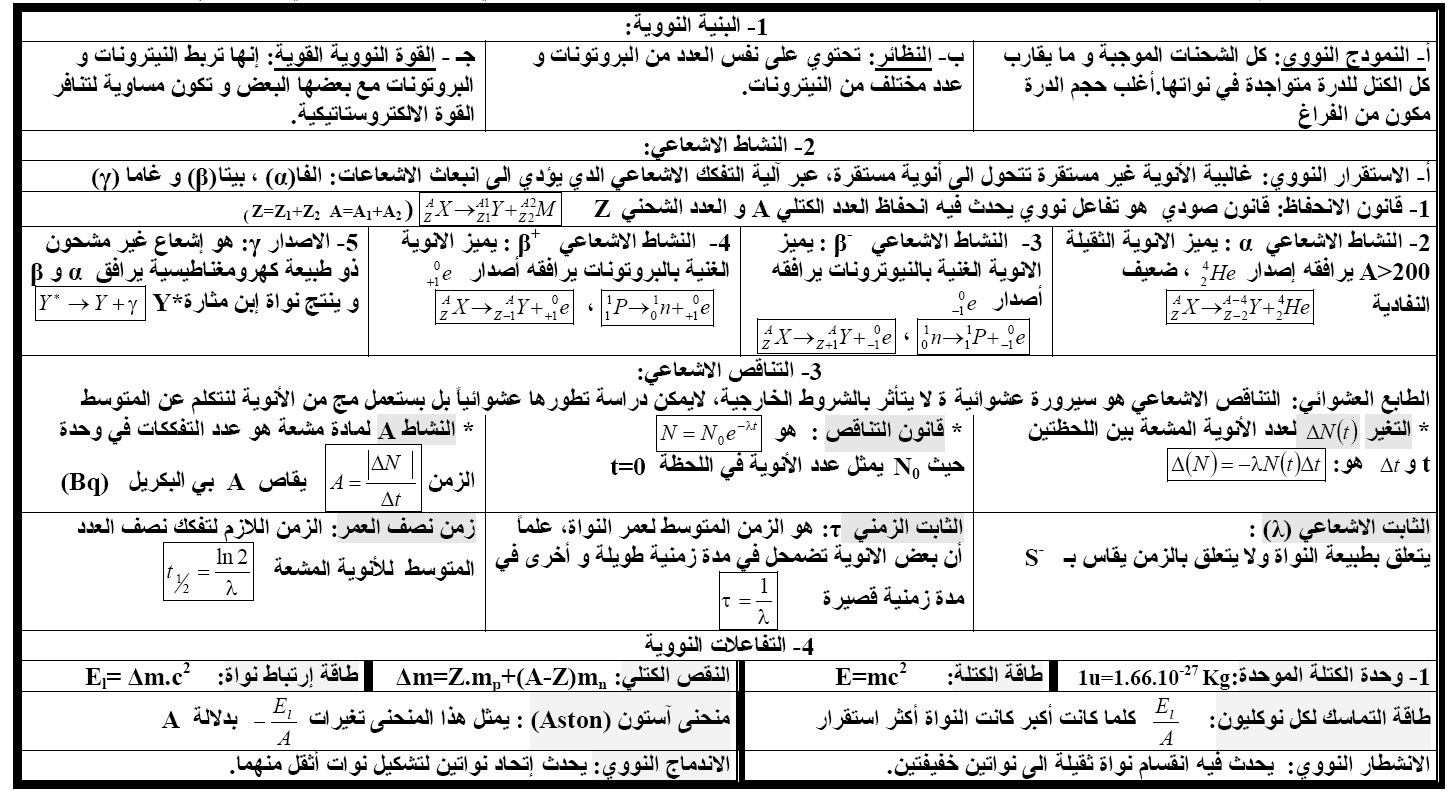 1- البنية النووية:
أ- النمودج النووي: كل الشحنات الموجبة و ما يقارب
كل الكتل للدرة متواجدة في نواتها.أغلب حجم الدرة
مكون من الفراغ
ب- النظائر: تحتوي على نفس العدد من البروتونات و
عدد مختلف من النيترونات.
جـ - القوة النووية القوية: إنها تربط النيترونات و
البروتونات مع بعضها البعض و تكون مساوية لتنافر
القوة الالكتروستاتيكية.
2- النشاط الاشعاعي:
أ- الاستقرار النووي: غالبية الأنوية غير مستقرة تتحول الى أنوية مستقرة، عبر آلية التفكك الاشعاعي الدي يؤدي الى انبعاث الاشعاعات: الفا(α) ، بيتا(β) و غاما (γ)
1- قانون الانحفاظ: قانون صودي هو تفاعل نووي يحدث فيه انحفاظ العدد الكتلي A و العدد الشحني Z ᴬ_Z X → ᴬ¹_Z1 Y + ᴬ²_Z2 M (Z=Z₁+Z₂ A=A₁+A₂)
2- النشاط الاشعاعي α : يميز الانوية الثقيلة
A>200 يرافقه إصدار ⁴₂He ، ضعيف
النفادية ᴬ_Z X → ᴬ⁻⁴_Z-2 Y + ⁴₂He
3- النشاط الاشعاعي β⁻ : يميز
الانوية الغنية بالنيوترونات يرافقه
أصدار ⁰₋₁e
¹₀n → ¹₁P + ⁰₋₁e ، ᴬ_Z X → ᴬ_Z+1 Y + ⁰₋₁e
4- النشاط الاشعاعي β⁺ : يميز الانوية
الغنية بالبروتونات يرافقه أصدار ⁰₊₁e
¹₁P → ¹₀n + ⁰₊₁e ، ᴬ_Z X → ᴬ_Z-1 Y + ⁰₊₁e
5- الاصدار γ: هو إشعاع غير مشحون
ذو طبيعة كهرومغناطيسية يرافق α و β
و ينتج نواة إبن مثارة*Y Y* → Y + γ
3- التناقص الاشعاعي:
الطابع العشوائي: التناقص الاشعاعي هو سيرورة عشوائية ة لا يتأثر بالشروط الخارجية، لايمكن دراسة تطورها عشوائياً بل بستعمل مج من الأنوية لنتكلم عن المتوسط
* التغير ΔN(t) لعدد الأنوية المشعة بين اللحظتين
t و Δt هو: Δ(N) = −λN(t)Δt
* قانون التناقص : هو N = N₀e^−λt
حيث N₀ يمثل عدد الأنوية في اللحظة t=0
* النشاط A لمادة مشعة هو عدد التفككات في وحدة
الزمن A = |ΔN| / Δt يقاص A بي البكريل (Bq)
الثابت الاشعاعي (λ) :
يتعلق بطبيعة النواة ولا يتعلق بالزمن يقاس بـ S⁻
الثابت الزمني τ: هو الزمن المتوسط لعمر النواة، علماً
أن بعض الانوية تضمحل في مدة زمنية طويلة و أخرى في
مدة زمنية قصيرة τ = 1/λ
زمن نصف العمر: الزمن اللازم لتفكك نصف العدد
المتوسط للأنوية المشعة t½ = ln 2 / λ
4- التفاعلات النووية
1- وحدة الكتلة الموحدة:1u=1.66.10⁻²⁷ Kg طاقة الكتلة: E=mc² النقص الكتلي: Δm=Z.mₚ+(A-Z)mₙ طاقة إرتباط نواة: Eₗ= Δm.c²
طاقة التماسك لكل نوكليون: Eₗ/A كلما كانت أكبر كانت النواة أكثر استقرار
منحنى آستون (Aston) : يمثل هذا المنحنى تغيرات −Eₗ/A بدلالة A
الانشطار النووي: يحدث فيه انقسام نواة ثقيلة الى نواتين خفيفتين.
الاندماج النووي: يحدث إتحاد نواتين لتشكيل نوات أثقل منهما.